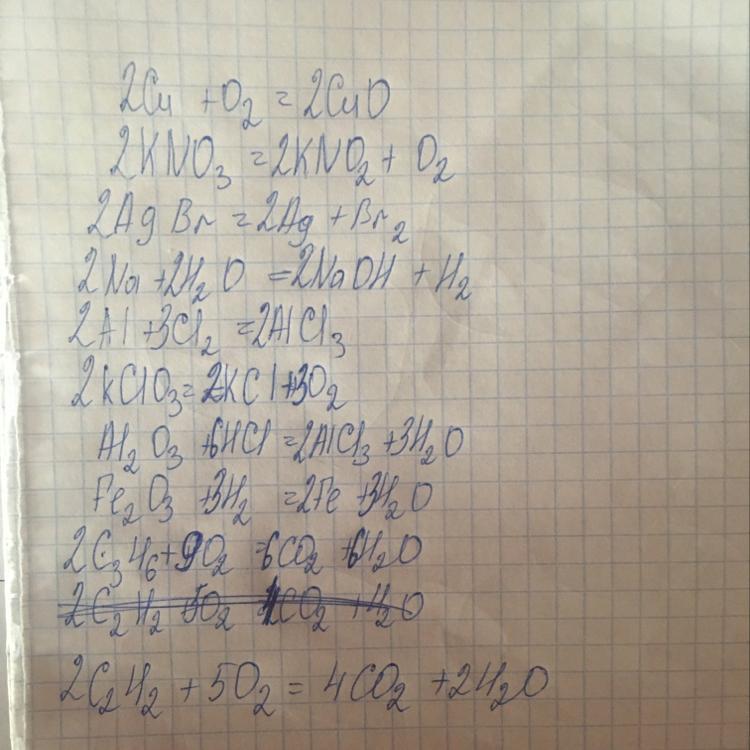 2Cu + O₂ = 2CuO
2KNO₃ = 2KNO₂ + O₂
2AgBr = 2Ag + Br₂
2Na + 2H₂O = 2NaOH + H₂
2Al + 3Cl₂ = 2AlCl₃
2KClO₃ = 2KCl + 3O₂
Al₂O₃ + 6HCl = 2AlCl₃ + 3H₂O
Fe₂O₃ + 3H₂ = 2Fe + 3H₂O
2C₃H₆ + 9O₂ = 6CO₂ + 6H₂O
2C₂H₂ 5O₂ 4CO₂ + H₂O
2C₂H₂ + 5O₂ = 4CO₂ + 2H₂O